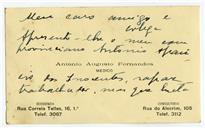 Meu caro amigo e
colega
Apresento-lhe o meu com-
provinciano Antonio
Antonio Augusto Fernandes
MEDICO
dos Inocentes, rapaz
trabalhador, mas que
RESIDENCIA
Rua Correia Telles, 16, 1.º
Telef. 3067
CONSULTORIO
Rua do Alecrim, 105
Telef. 3112